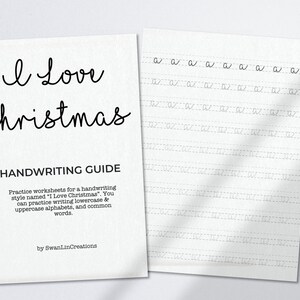 I Love
Christmas
HANDWRITING GUIDE
Practice worksheets for a handwriting
style named "I Love Christmas". You
can practice writing lowercase &
uppercase alphabets, and common
words.
by SwanLinCreations
a a a a a a a a
a a a a a a a a
a a a a a a a a